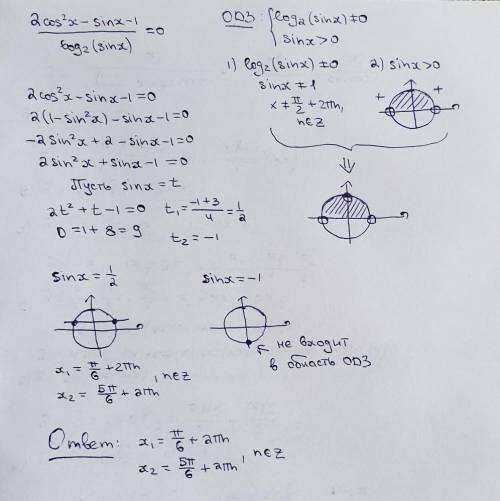 2cos²x - sinx - 1
log₂(sinx) = 0
ОДЗ: { log₂(sinx) ≠ 0
sinx > 0
1) log₂(sinx) ≠ 0
sinx ≠ 1
x ≠ π/2 + 2πn,
n∈Z
2) sinx > 0
+ +
⇓
2cos²x - sinx - 1 = 0
2(1 - sin²x) - sinx - 1 = 0
-2sin²x + 2 - sinx - 1 = 0
2sin²x + sinx - 1 = 0
Пусть sinx = t
2t² + t - 1 = 0
D = 1 + 8 = 9
t₁ = (-1+3)/4 = 1/2
t₂ = -1
sinx = 1/2
x₁ = π/6 + 2πn
x₂ = 5π/6 + 2πn , n∈Z
sinx = -1
не входит
в область ОДЗ
Ответ: x₁ = π/6 + 2πn
x₂ = 5π/6 + 2πn , n∈Z